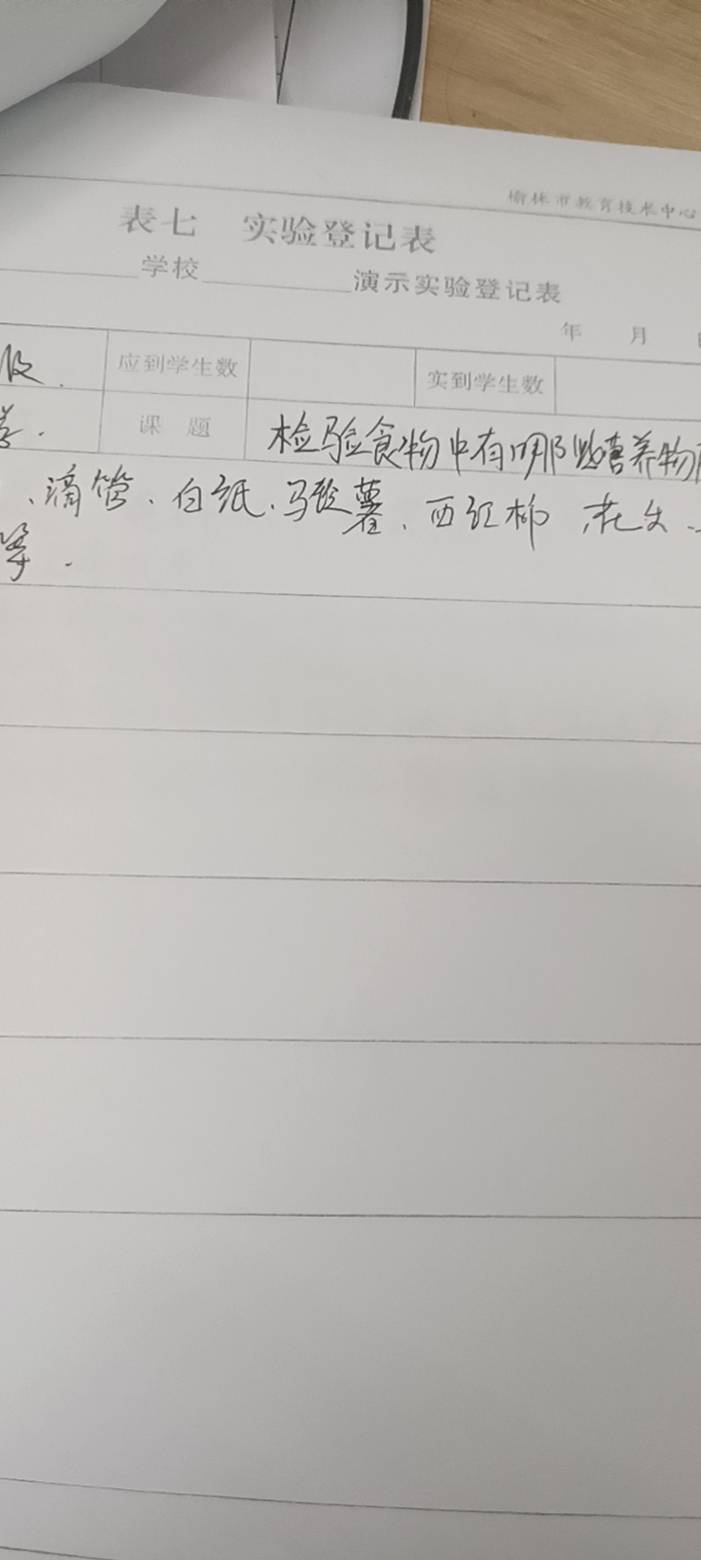 榆林市教育技术中心
表七 实验登记表
学校 演示实验登记表
年 月
应到学生数 实到学生数
课 题 检验食物中有哪些营养物
、滴管、白纸、马铃薯、西红柿 花生、
等.